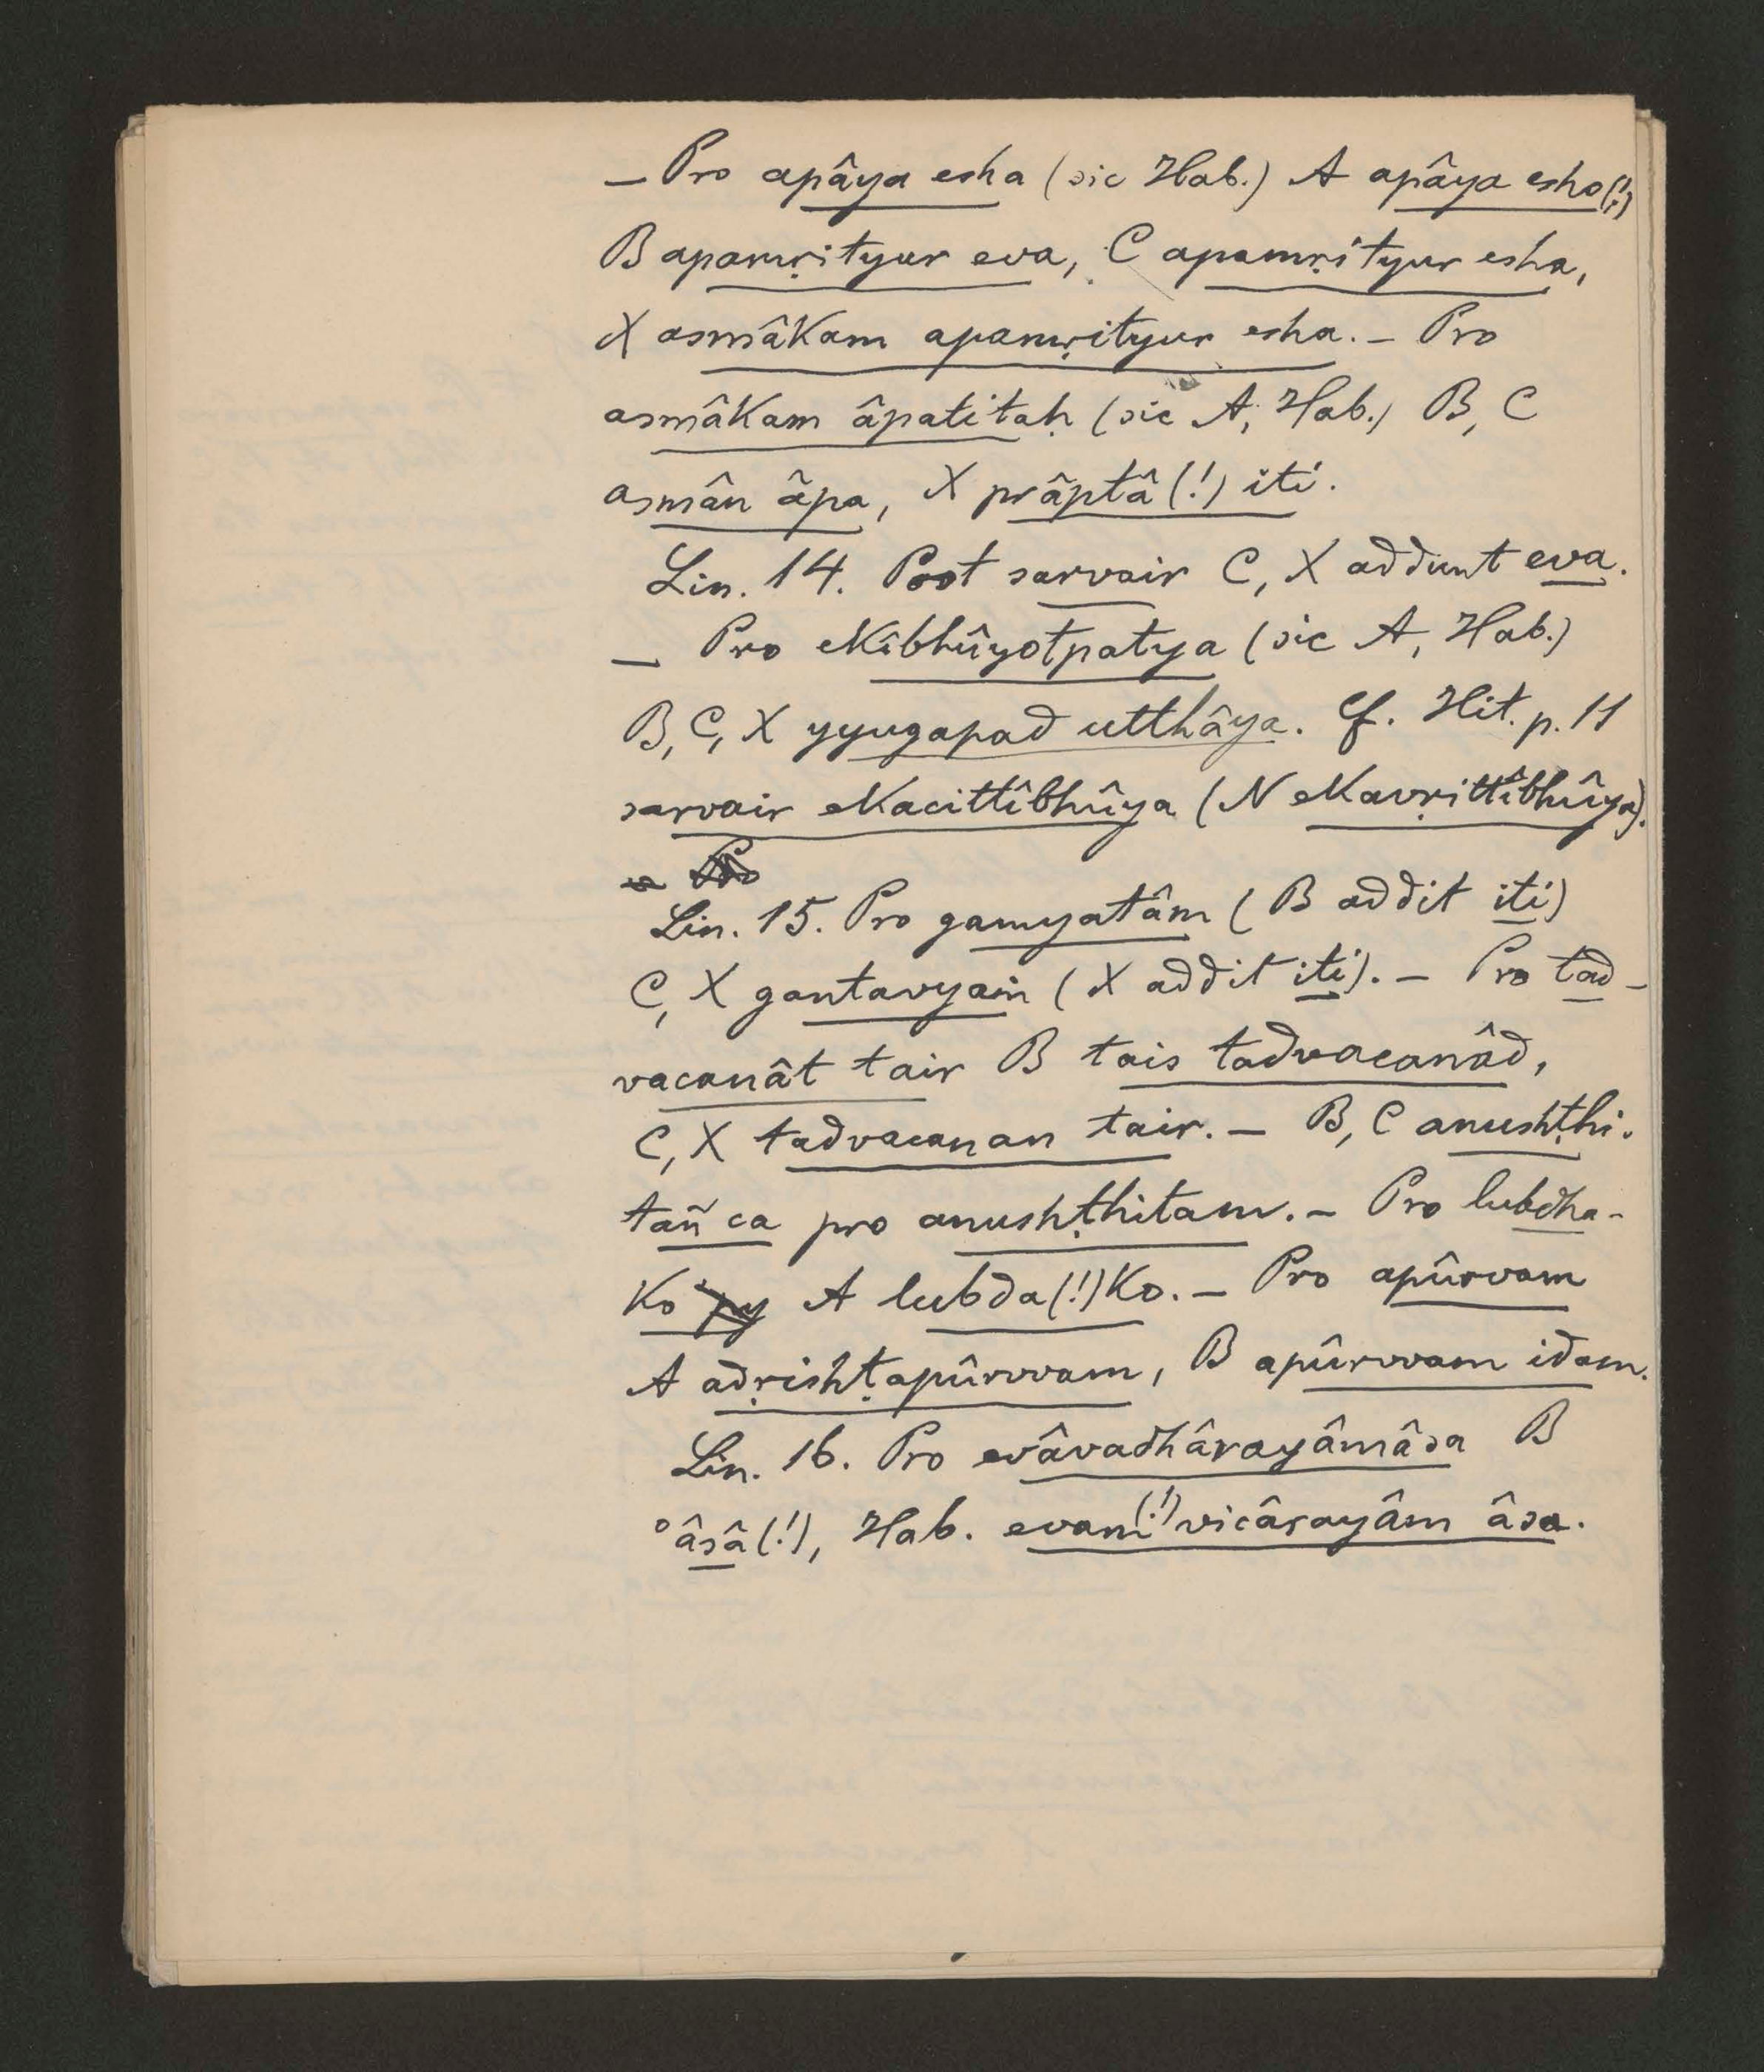 — Pro apâya esha (sic Hab.) A apâya esho(!)
B apamṛityur eva, C apamṛityur esha,
X asmâkam apamṛityur esha. — Pro
asmâkam âpatitaḥ (sic A, Hab.) B, C
asmân âpa, X prâptâ(!) iti.
Lin. 14. Post sarvair C, X addunt eva.
— Pro ekîbhûyotpatya (sic A, Hab.)
B, C, X yyugapad utthâya. Cf. Hit. p. 11
sarvair ekacittîbhûya (N ekavṛittîbhûya).
Lin. 15. Pro gamyatâm (B addit iti)
C, X gantavyaṁ (X addit iti). — Pro tad-
vacanât tair B tais tadvacanâd,
C, X tadvacanan tair. — B, C anushṭhi-
tañ ca pro anushṭhitam. — Pro lubdha-
ko A lubda(!)ko. — Pro apûrvam
A adṛishṭapûrvvam, B apûrvvam idam.
Lin. 16. Pro evâvadhârayâmâsa B
°âsâ(!), Hab. evam(!) vicârayâm âsa.